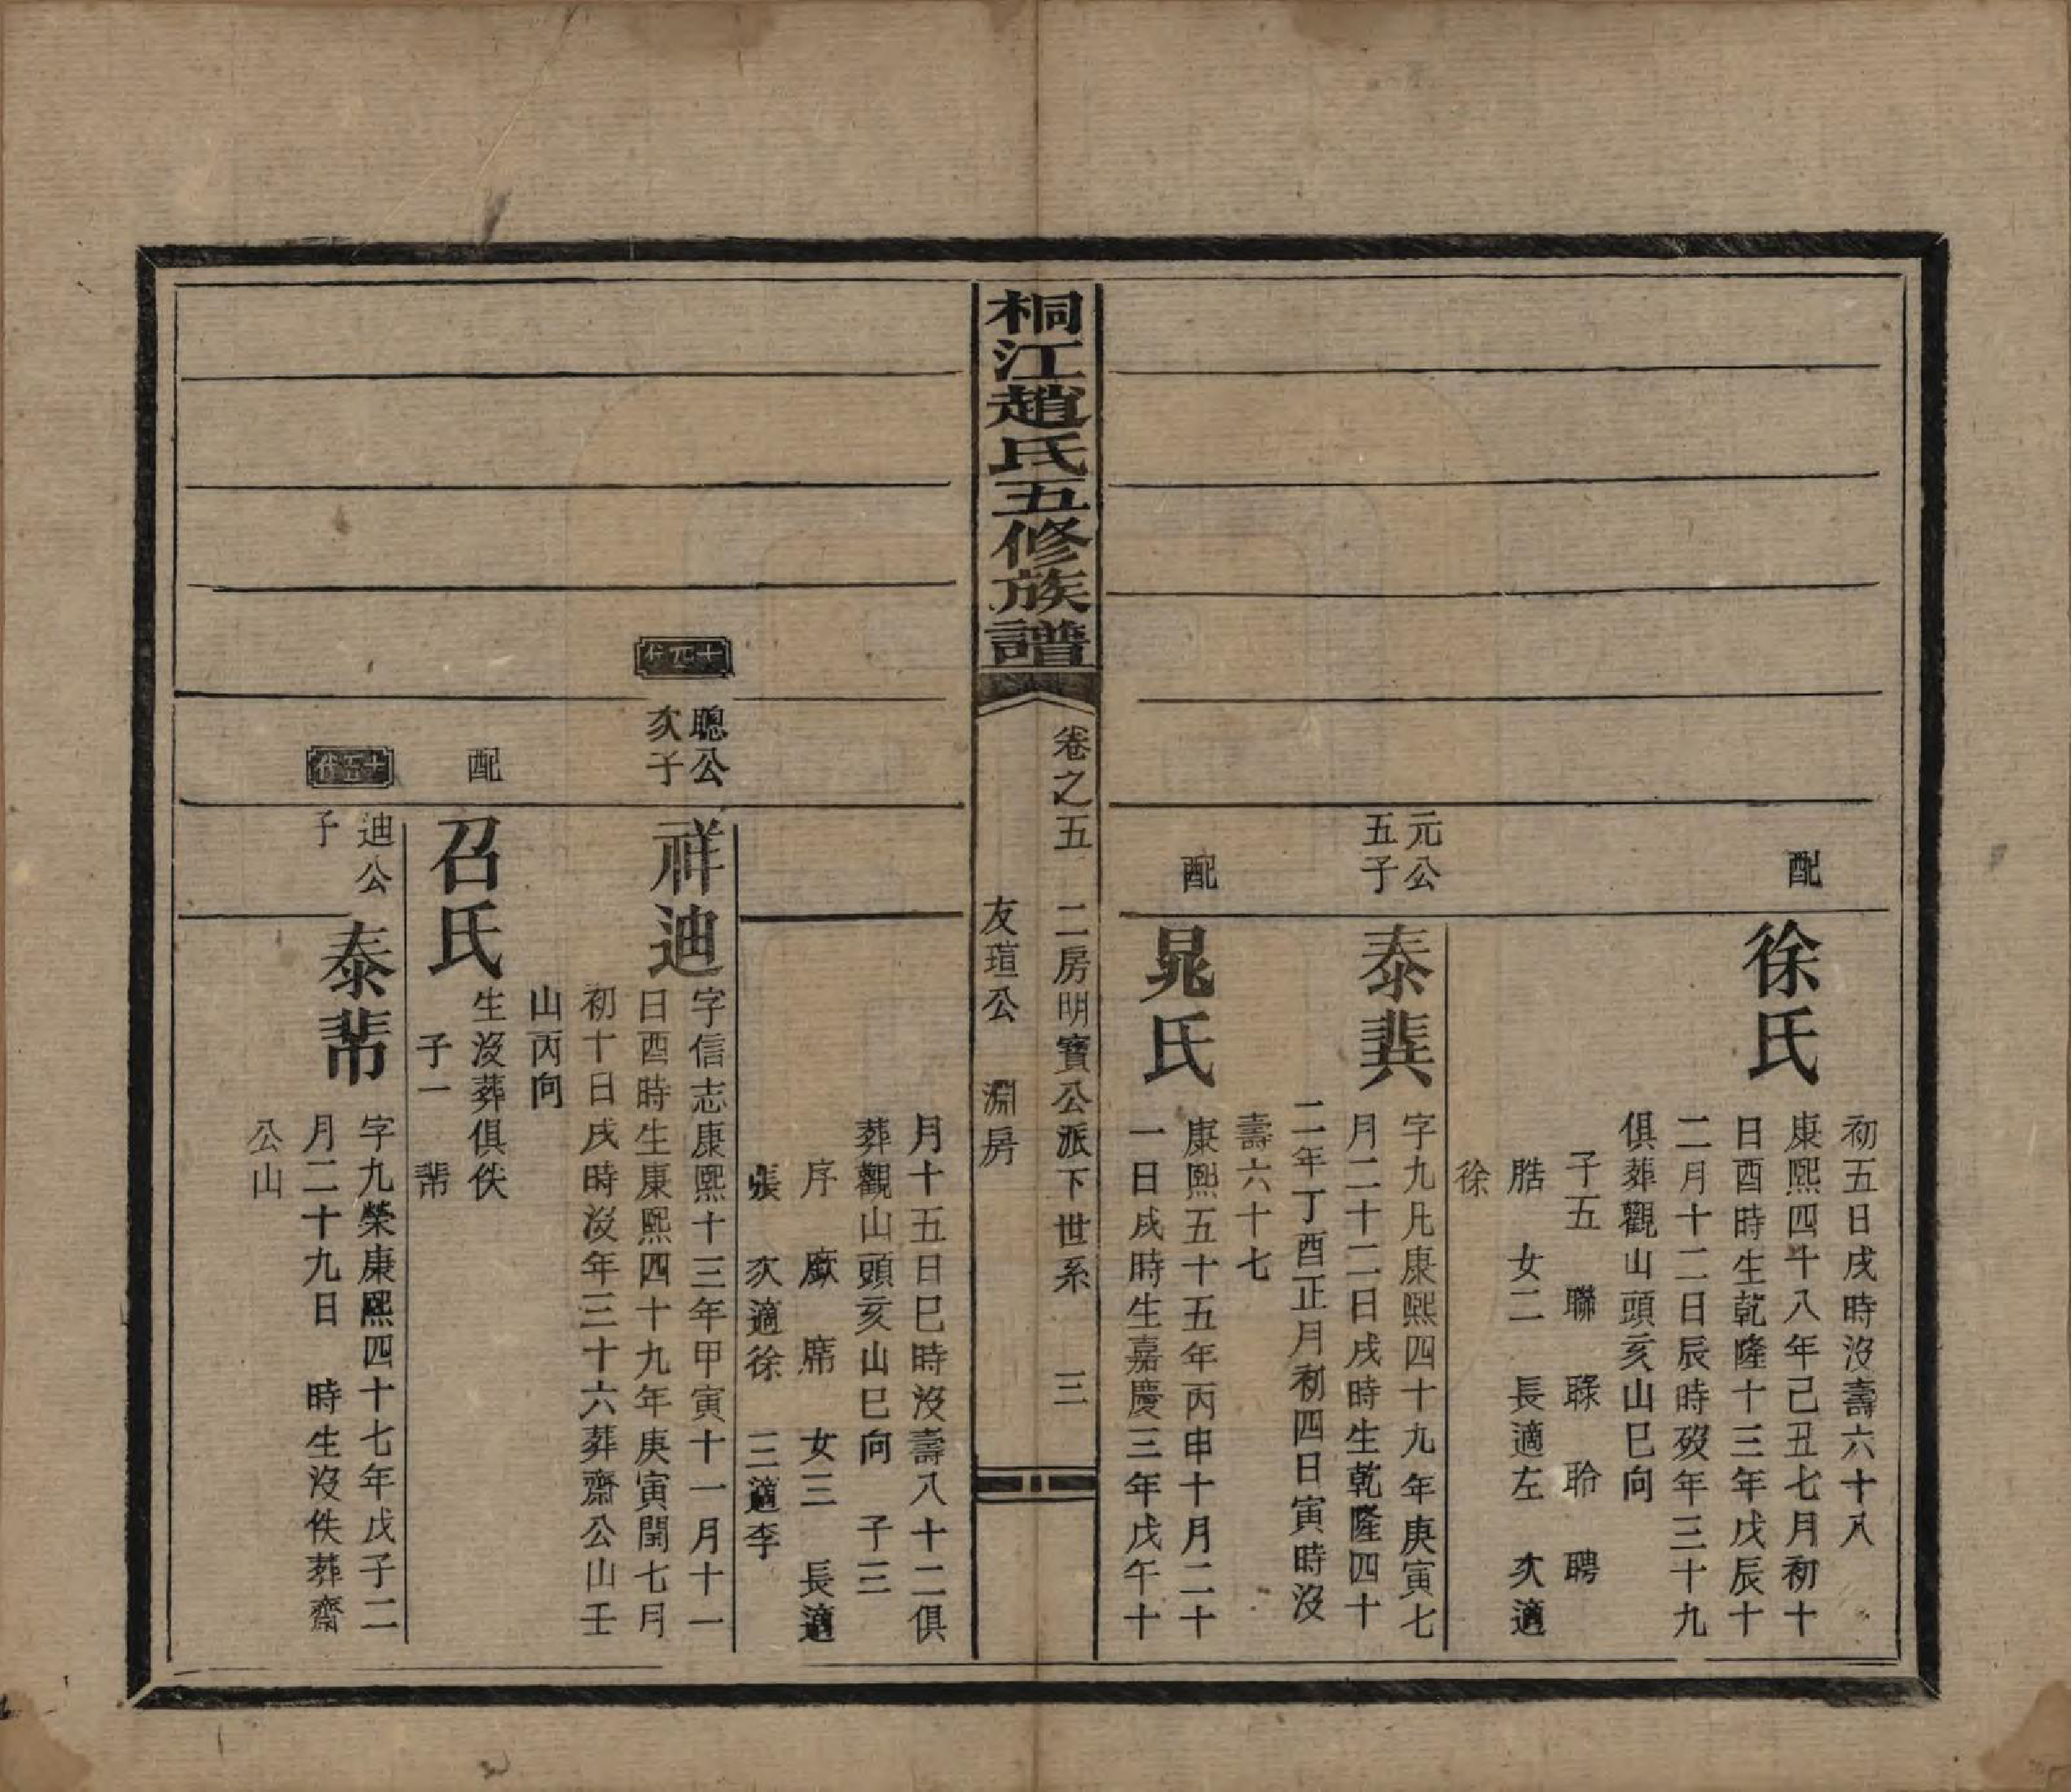 初五日戌時沒壽六十八
配
徐氏
康熙四十八年己丑七月初十
日酉時生乾隆十三年戊辰十
二月十二日辰時歿年三十九
俱葬觀山頭亥山巳向
子五 聯 聺 聆 聘
䏦 女二 長適左 次適
徐
元公
五子
泰龚
字九凡康熙四十九年庚寅七
月二十二日戌時生乾隆四十
二年丁酉正月初四日寅時沒
壽六十七
配
晁氏
康熙五十五年丙申十月二十
一日戌時生嘉慶三年戊午十
桐江趙氏五修族譜
卷之五 二房明寶公派下世系 三
友瑄公 淵房
月十五日巳時沒壽八十二俱
葬觀山頭亥山巳向 子三
序 廞 席 女三 長適
張 次適徐 三適李
十四代
聰公
次子
祥迪
字信志康熙十三年甲寅十一月十一
日酉時生康熙四十九年庚寅閏七月
初十日戌時沒年三十六葬齋公山壬
山丙向
配
召氏
生沒葬俱佚
子一 芾
十五代
迪公
子
泰芾
字九榮康熙四十七年戊子二
月二十九日 時生沒佚葬齋
公山